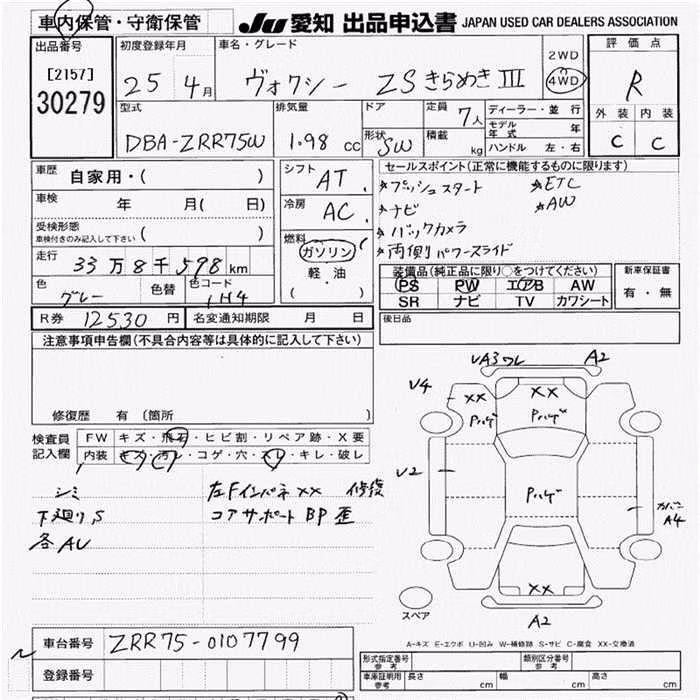 車内保管・守衛保管
JU 愛知 出品申込書 JAPAN USED CAR DEALERS ASSOCIATION
出品番号
[2157]
30279
初度登録年月
25 4月
車名・グレード
ヴォクシー ZSきらめきIII
2WD
4WD
評価点
R
外装 内装
C C
型式
DBA-ZRR75W
排気量
1.98 cc
ドア
形状 SW
定員 7人
積載 kg
ディーラー・並行
モデル年式 年
ハンドル 左・右
車歴 自家用・( )
車検 年 月( 日)
受検形態
車検付きのみ記入して下さい ( )
走行 33万8千598km
色 グレー
色替
色コード 1H4
シフト AT
冷房 AC
燃料
ガソリン
軽・油
( )
セールスポイント(正常に機能するものに限ります)
★プッシュスタート ★ETC
★ナビ ★AW
★バックカメラ
★両側パワースライド
装備品(純正品に限り○をつけてください)
PS PW エアB AW
SR ナビ TV カワシート
新車保証書
有・無
R券 12530円 名変通知期限 月 日
後日品
注意事項申告欄(不具合内容等は具体的に記入して下さい)
修復歴 有 (箇所 )
検査員記入欄
FW キズ・飛石・ヒビ割・リペア跡・X要
内装 キズ・汚レ・コゲ・穴・スレ・キレ・破レ
シミ
下廻りS
各AU
左Fインパネ XX 修復
コアサポート BP歪
VA3ワレ A2
V4 XX XX
Pハゲ Pハゲ
V2 Pハゲ
カバーA4
XX
A2
スペア
A-キズ E-エクボ U-凹み W-補修跡 S-サビ C-腐食 XX-交換済
車台番号 ZRR75-0107799
登録番号
形式指定番号 参考
類別区分番号 参考
車庫証明用 参考 長さ cm 幅 cm 高さ cm